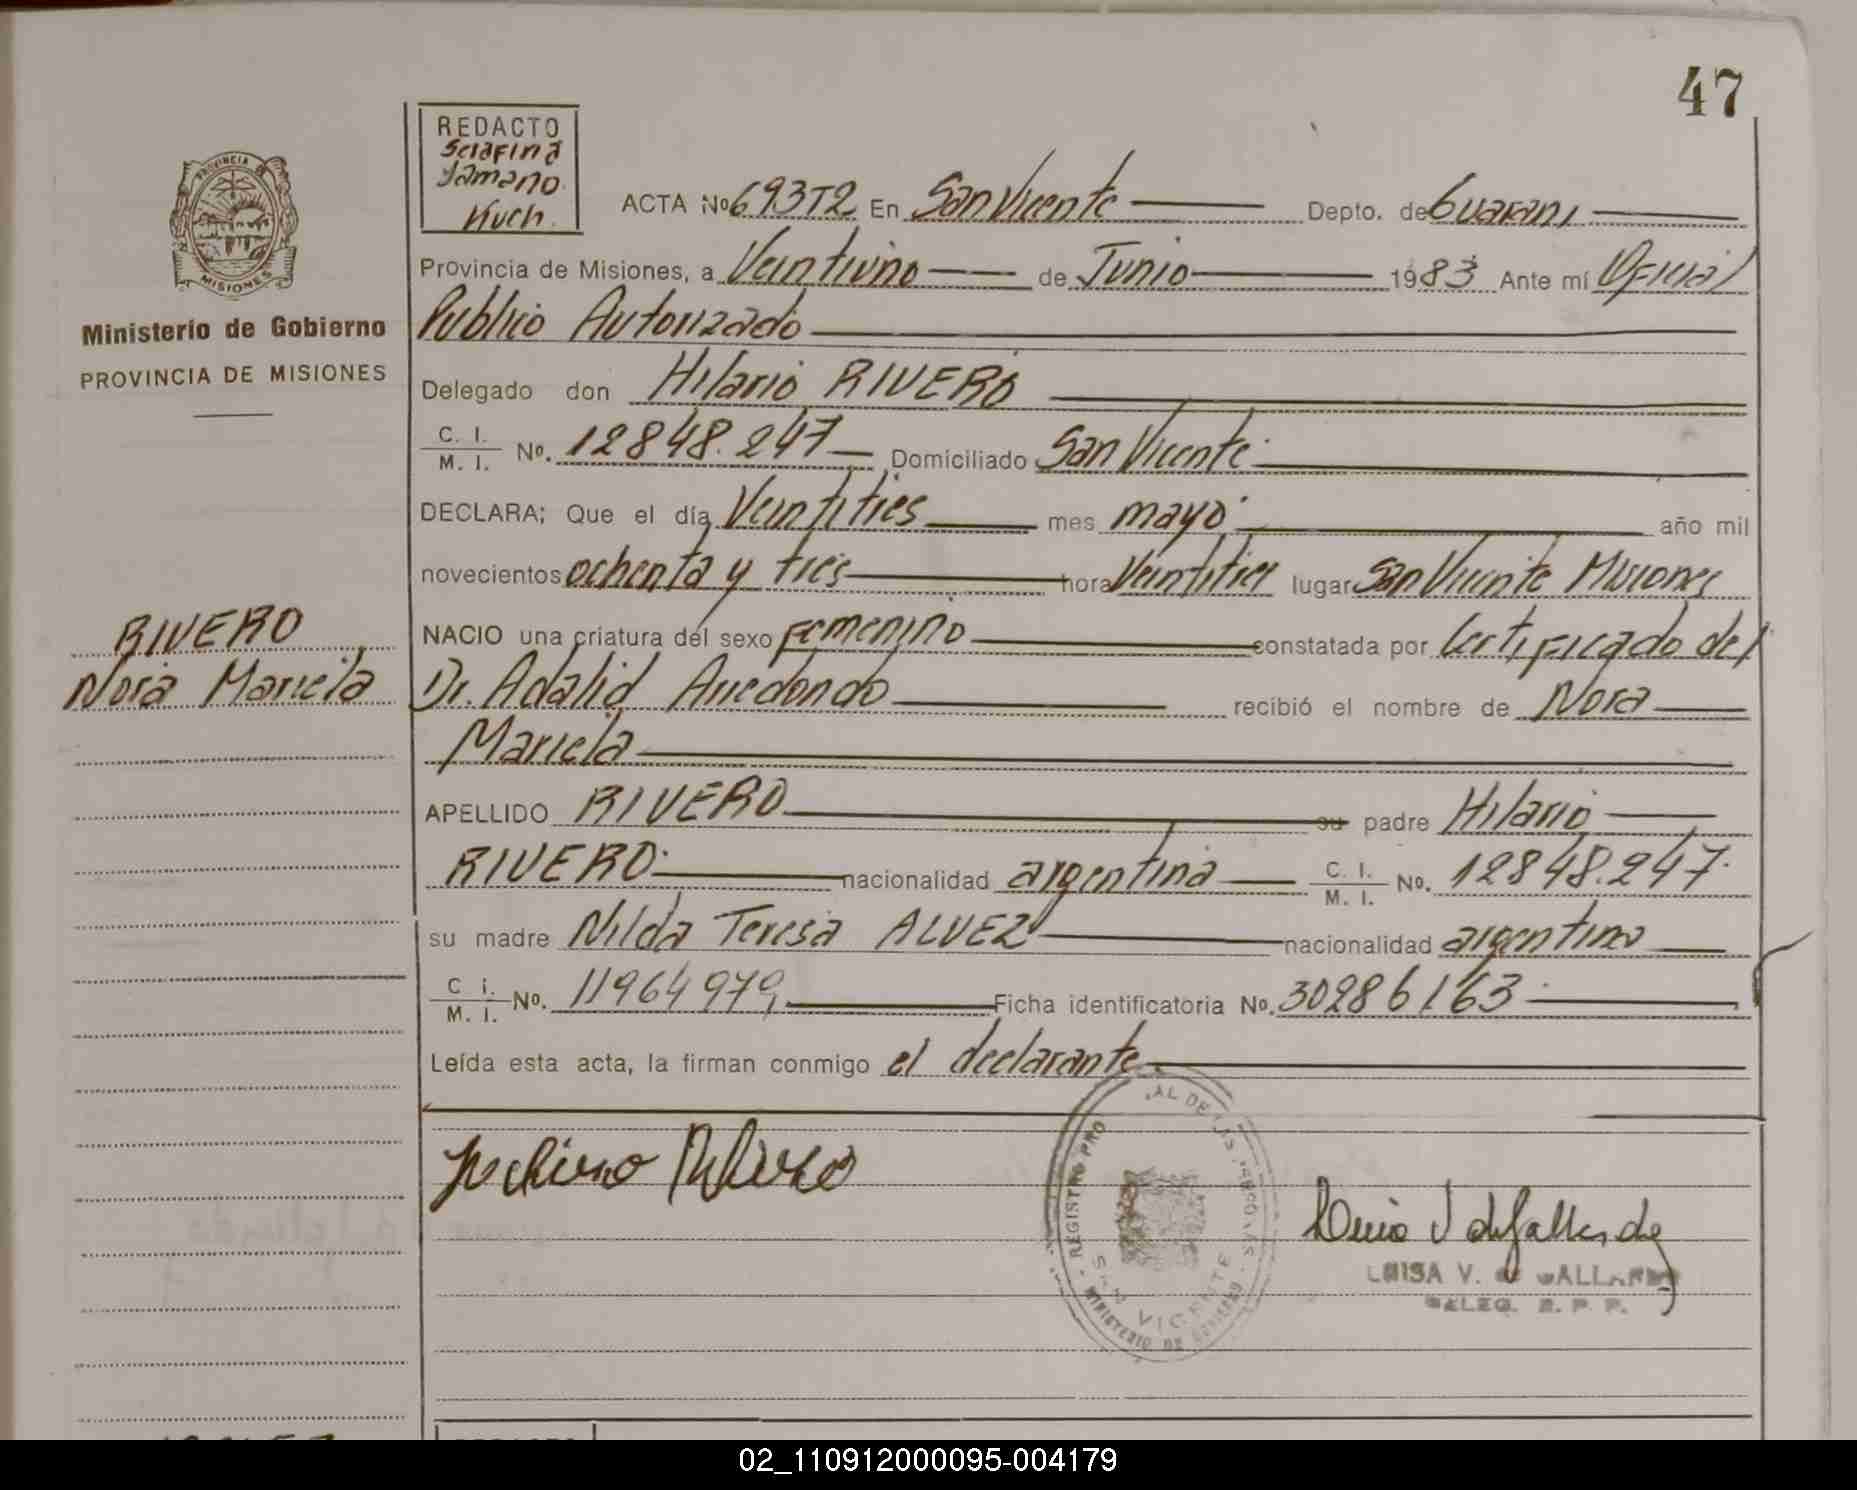 47
REDACTO
Serafina
Tamano
Kuch.
ACTA Nº 693T2 En San Vicente Depto. de Guarani
Provincia de Misiones, a Veintiuno de Junio 1983 Ante mí Oficial
Publico Autorizado
PROVINCIA
MISIONES
Ministerio de Gobierno
PROVINCIA DE MISIONES
Delegado don Hilario RIVERO
C. I.
M. I. Nº. 12848.247 Domiciliado San Vicente
DECLARA; Que el día Veintitres mes mayo año mil
novecientos ochenta y tres hora Veintitres lugar San Vicente Misiones
RIVERO
Nora Mariela
NACIO una criatura del sexo Femenino constatada por Certificado del
Dr. Adalid Arredondo recibió el nombre de Nora
Mariela
APELLIDO RIVERO su padre Hilario
RIVERO nacionalidad argentina C. I.
M. I. Nº. 12848.247
su madre Nilda Teresa ALVEZ nacionalidad argentina
C. i.
M. I. Nº. 11964979 Ficha identificatoria Nº. 30286163
Leída esta acta, la firman conmigo el declarante
REGISTRO PRO AL DE LAS
MINISTERIO DE GOBIERNO
SAN VICENTE
LUISA V. de GALLARDO
DELEG. R. P. P.
02_110912000095-004179